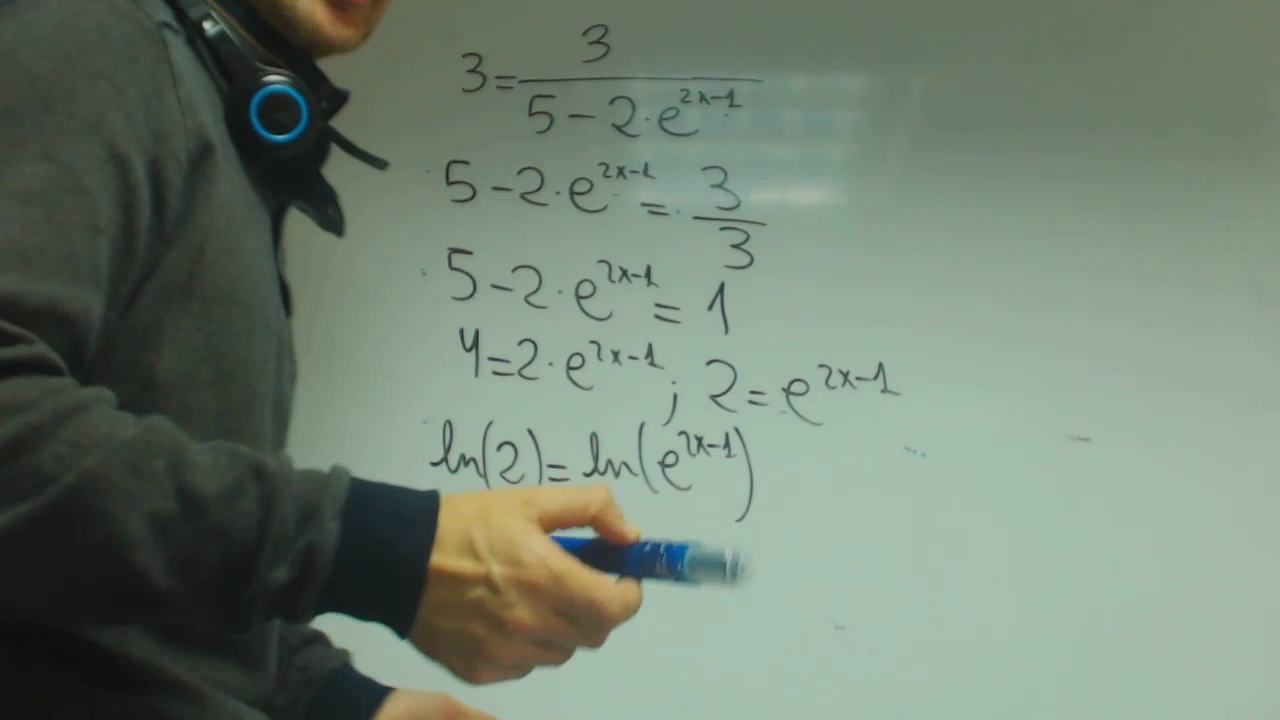 3 = 3 / (5 - 2 · e^(2x-1))
5 - 2 · e^(2x-1) = 3/3
5 - 2 · e^(2x-1) = 1
4 = 2 · e^(2x-1) ; 2 = e^(2x-1)
ln(2) = ln(e^(2x-1))